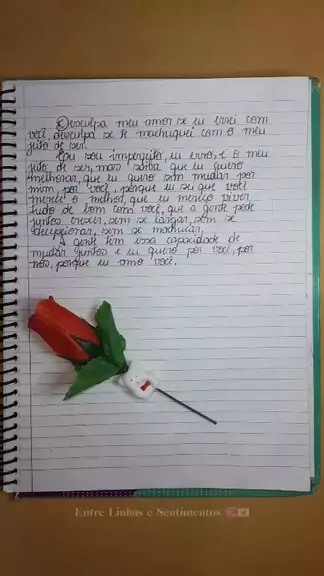 Desculpa meu amor se eu errei com
você, desculpa se te machuquei com o meu
jeito de ser.
Eu sou imperfeito, eu erro, é o meu
jeito de ser, mas saiba que eu quero
melhorar, que eu quero sim mudar por
mim, por você, porque eu sei que você
merece o melhor, que eu mereço viver
tudo de bom com você, que a gente pode
juntos crescer, sem se largar, sem se
decepcionar, sem se machucar,
A gente tem essa capacidade de
mudar juntos e eu quero por você, por
nós, porque eu amo você.
Entre Linhas e Sentimentos